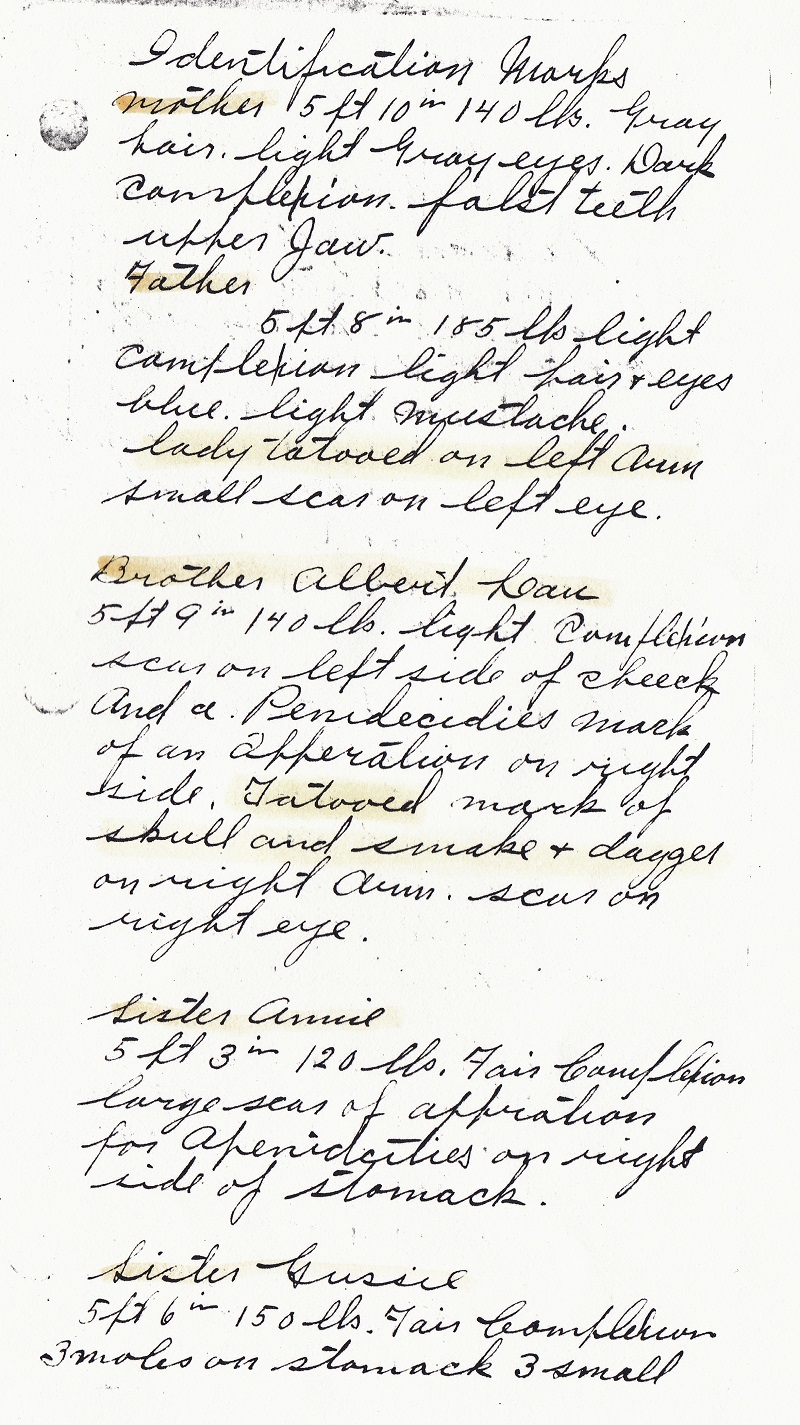 Identification Marks
mother 5 ft 10 in 140 lbs. Gray
hair. light Gray eyes. Dark
complexion. falst teeth
upper Jaw.
Father
5 ft 8 in 185 lbs light
complexion light hair + eyes
blue. light mustache.
lady tatooed on left Arm
small scar on left eye.
Brother Albert
5 ft 9 in 140 lb. light Complexion
scar on left side of cheeck
And a. Penidecidies mark
of an Apperation on right
side. Tatooed mark of
skull and smake + dagger
on right Arm. scar on
right eye.
Sister Annie
5 ft 3 in 120 lbs. Fair Complexion
large scar of appration
for Apenidcities on right
side of stomack.
Sister Gussie
5 ft 6 in 150 lbs. Fair Complexion
3 moles on stomack 3 small